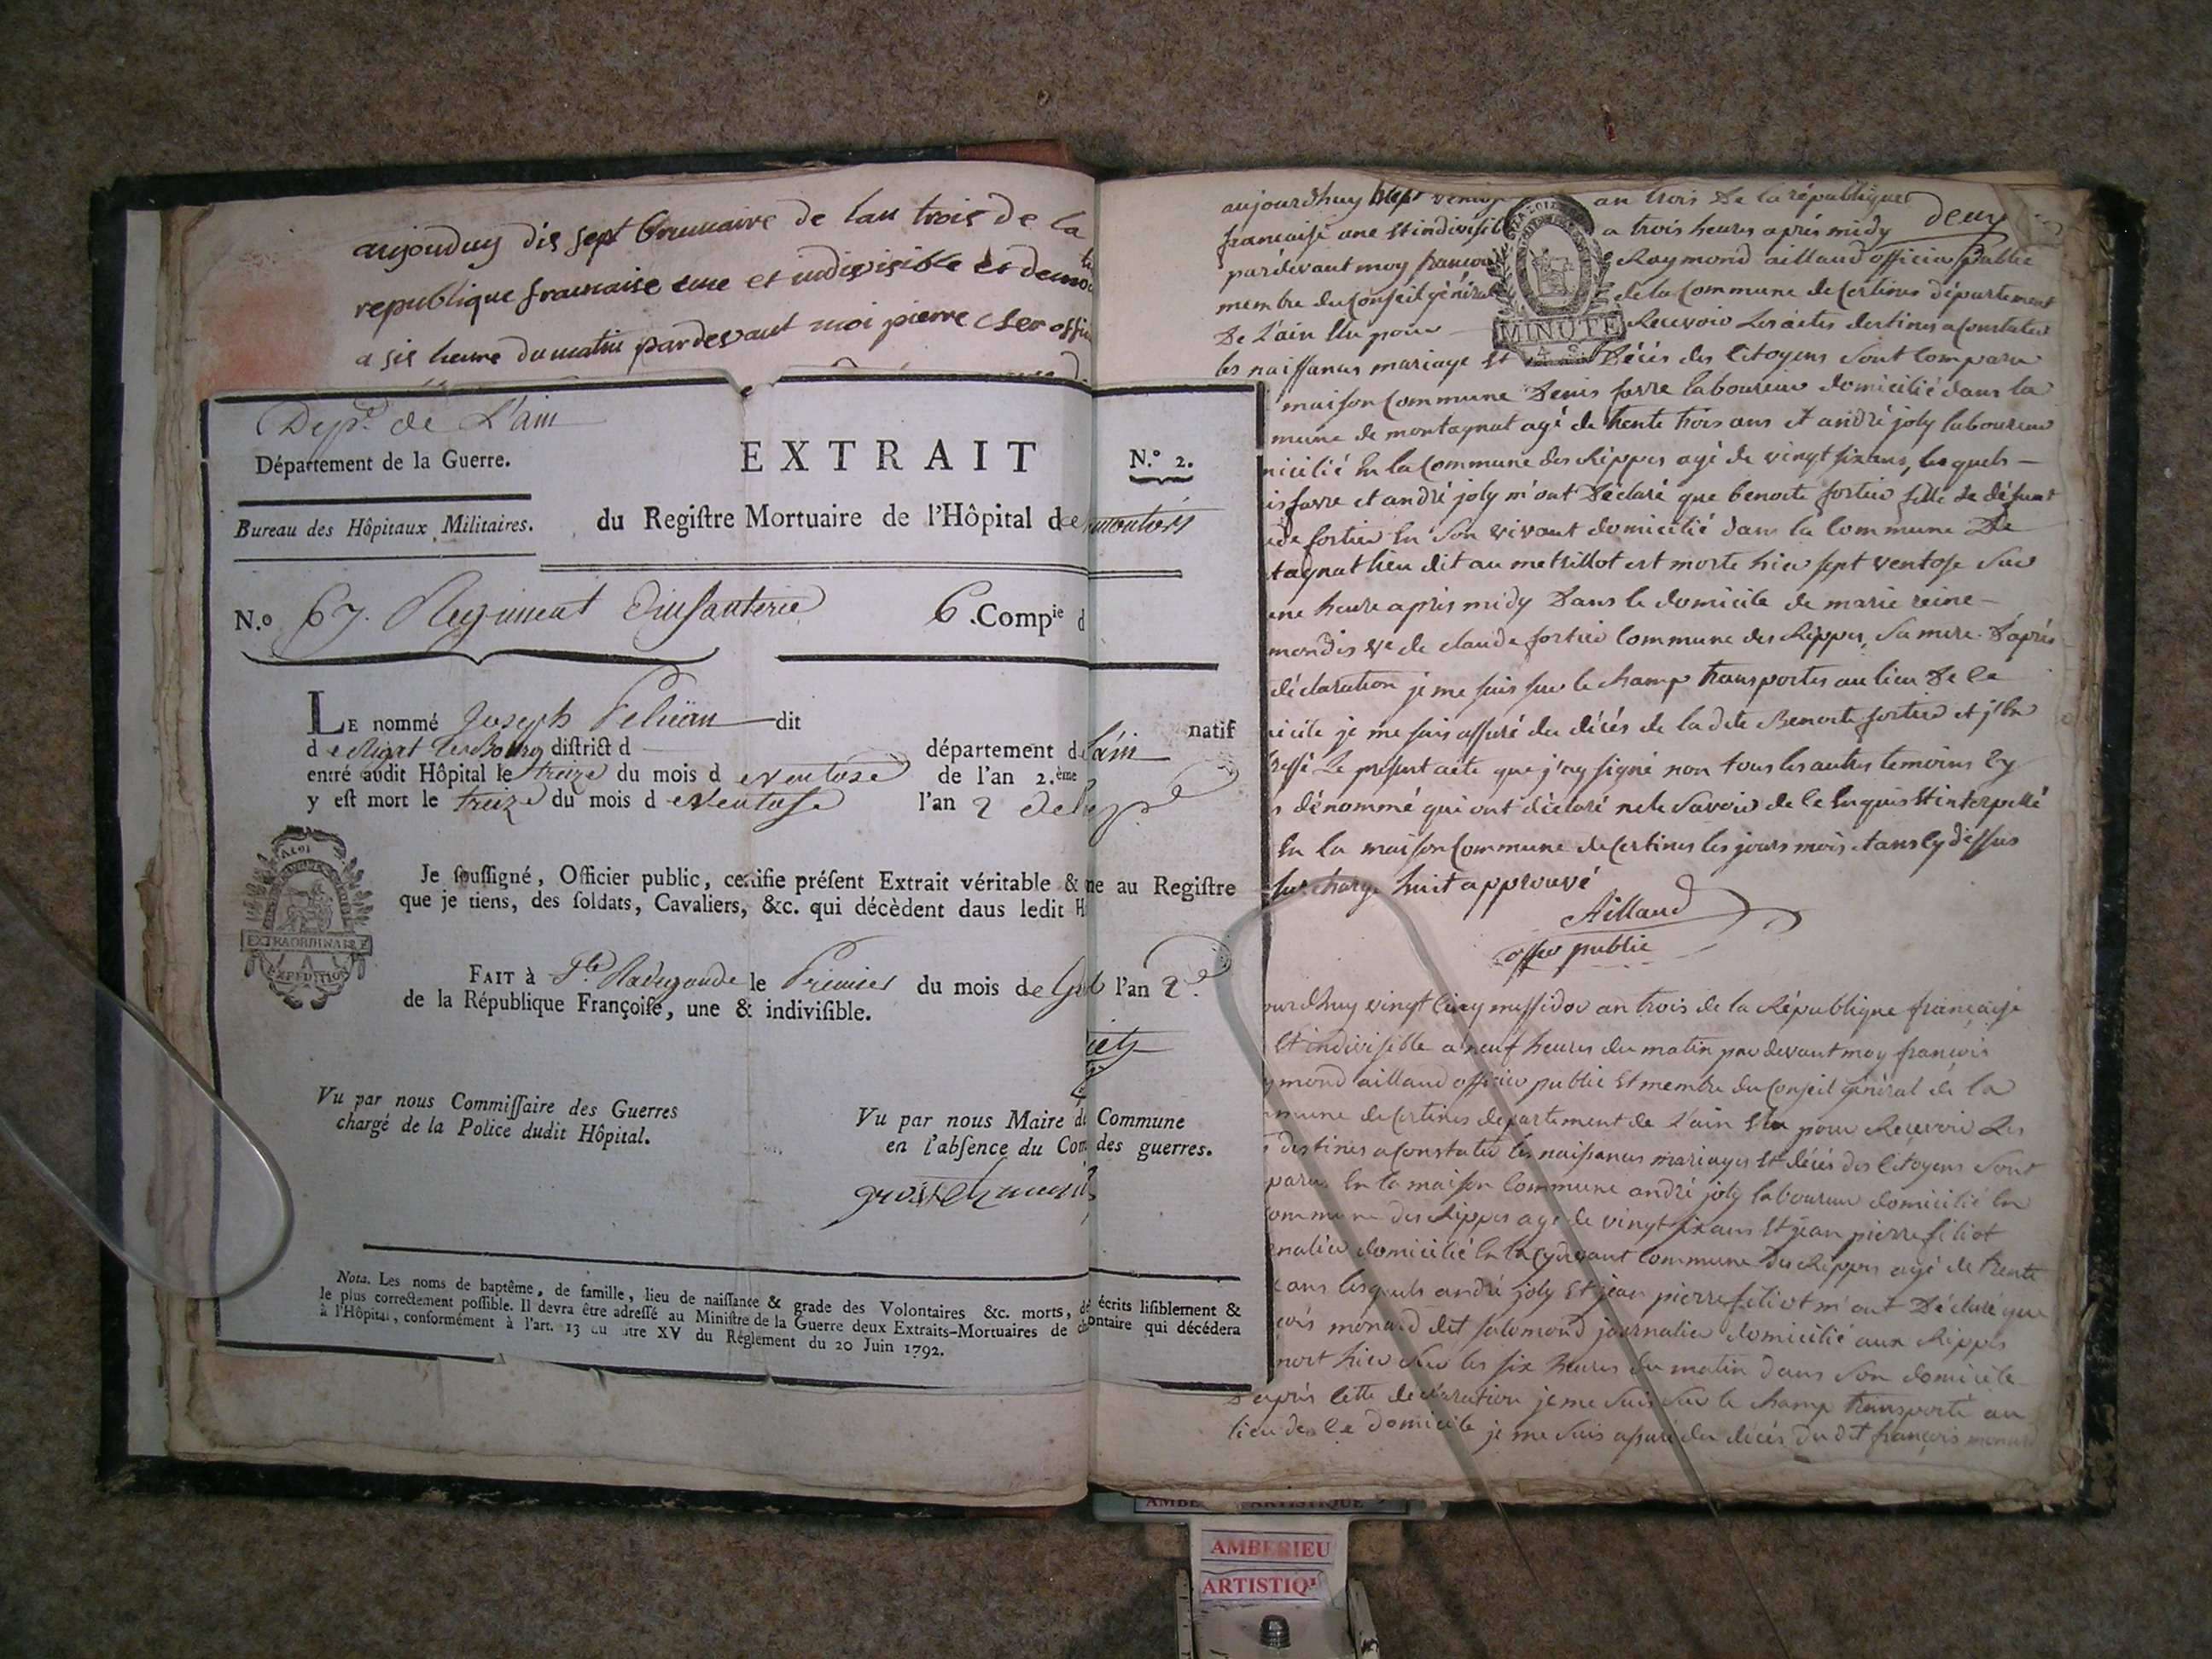 aujourduy dis sept brumaire de lan trois de la
republique francaise une et indivisible et democ
a sis heure du matin pardevant moi pierre cler offi
Depr. de L'ain
Département de la Guerre.
Bureau des Hôpitaux Militaires.
EXTRAIT
N.º 2.
du Regiſtre Mortuaire de l'Hôpital de
N.º 67. Regiment d'infanterie 6.Compie d
LE nommé Joseph dit natif
d diſtrict d département de l'ain
entré audit Hôpital le treize du mois d e ventose de l'an 2.ème
y eſt mort le treize du mois d e Ventose l'an 2 de la rep
Je ſouſſigné, Officier public, certifie préſent Extrait véritable & ne au Regiſtre
que je tiens, des ſoldats, Cavaliers, &c. qui décèdent daus ledit H
EXTRAORDINAIRE
EXPEDITION
FAIT à Ste Radegonde le Premier du mois de l'an 2e.
de la République Françoiſe, une & indiviſible.
Vu par nous Commiſſaire des Guerres
chargé de la Police dudit Hôpital.
Vu par nous Maire de Commune
en l'abſence du Com des guerres.
Nota. Les noms de baptême, de famille, lieu de naiſſance & grade des Volontaires &c. morts, écrits liſiblement &
le plus correctement poſſible. Il devra être adreſſé au Miniſtre de la Guerre deux Extraits-Mortuaires de ontaire qui décédera
à l'Hôpital, conformément à l'art. 13 du titre XV du Réglement du 20 Juin 1792.
aujourdhuy an trois De la république deux
francaise une et indivisible a trois heures après midy
pardevant moy francois Raymond aillaud officier public
membre du Conseil général de la Commune de Certines département
De L'ain Elu pour Recevoir Les actes destines a constater
les naissances mariage et Décés des Citoyens Sont Comparu
maison Commune Denis favre laboureur domicilié dans la
mune de montagnat agé de trente trois ans et andré joly laboureur
micilié En la Commune des Rippes agé de vingt six ans, lesquels
is favre et andré joly m'ont Déclaré que benoite fortier fille de défunt
de fortier En Son vivant domicilié dans la Commune De
tagnat lieu dit au metrillot est morte hier sept ventose Sur
une heure après midy Dans le domicile de marie reine
mondis ve de claude fortier Commune des Rippes, Sa mere. D'après
déclaration je me suis sur le champ transportés au lieu De Ce
icile je me suis assuré du décés de la dite Benoite fortier et j'En
ressé Le présent acte que j'ay signé non tous les autres temoins Cy
s dénommé qui ont déclaré ne le Savoir de Ce Enquis Et interpellé
En la maison Commune de Certines les jours mois et ans Cy dessus
sur charge huit approuvé
Aillaud
offier public
MINUTE
ourdhuy vingt Cinq messidor an trois de la République francaise
Et indivisible a neuf heures du matin par devant moy françois
ymond aillaud officier public Et membre du Conseil général de la
mmune de Certines departement de L'ain Elu pour Recevoir Les
s destines a Constater les naissances mariages Et décés des Citoyens Sont
paru En la maison Commune andré joly laboureur domicilié En
omm ne des Rippes agé de vingt six ans Et jean pierre filiot
rnalier domicilié En la Cydevant Commune des Rippes agé de trente
ans lesquels andré joly Et jean pierre filiot m'ont Déclaré que
çois monard dit salomond journalier domicilié aux Rippes
mort hier Sur les six heures du matin dans Son domicile
D'après Cette declaration je me Suis Sur le champ transporté au
lieu de Ce domicile je me Suis assuré du décés du dit françois monard
AMBERIEU
ARTISTIQ